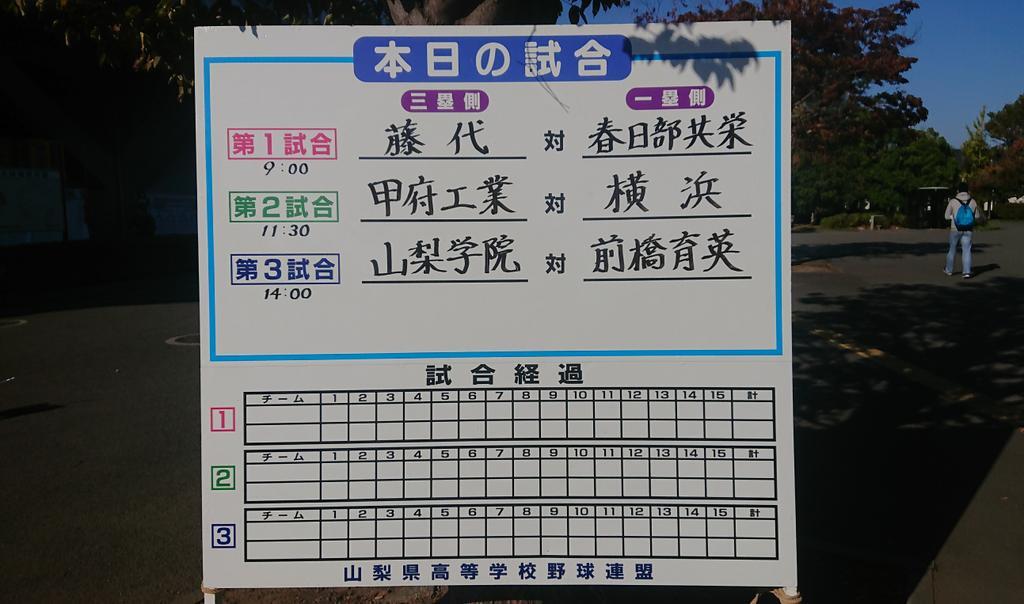 本日の試合
三塁側 一塁側
第1試合 藤代 対 春日部共栄
9:00
第2試合 甲府工業 対 横浜
11:30
第3試合 山梨学院 対 前橋育英
14:00
試合経過
チーム 1 2 3 4 5 6 7 8 9 10 11 12 13 14 15 計
1
チーム 1 2 3 4 5 6 7 8 9 10 11 12 13 14 15 計
2
チーム 1 2 3 4 5 6 7 8 9 10 11 12 13 14 15 計
3
山梨県高等学校野球連盟